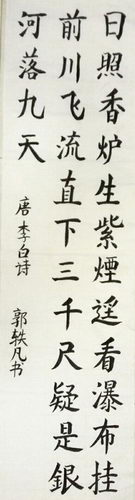 日照香炉生紫煙遥看瀑布挂
前川飞流直下三千尺疑是銀
河落九天
唐李白诗
郭轶凡书